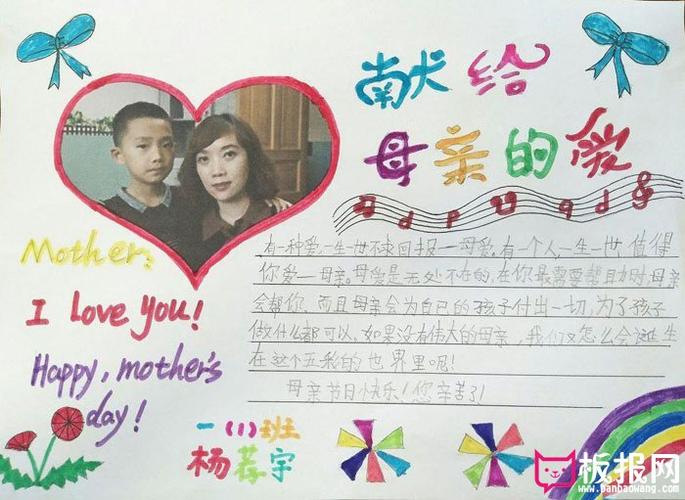 献给
母亲的爱
Mother:
I Love you!
Happy, mother's
day!
有一种爱,一生一世不求回报——母爱。有一个人,一生一世,值得
你爱——母亲。母爱是无处不在的,在你最需要帮助时,母亲
会帮你,而且母亲会为自己的孩子付出一切,为了孩子
做什么都可以,如果没有伟大的母亲,我们又怎么会诞生
在这个五彩的世界里呢!
母亲节日快乐!您辛苦了!
一(1)班
杨荐宇
板报网
www.banbaowang.com